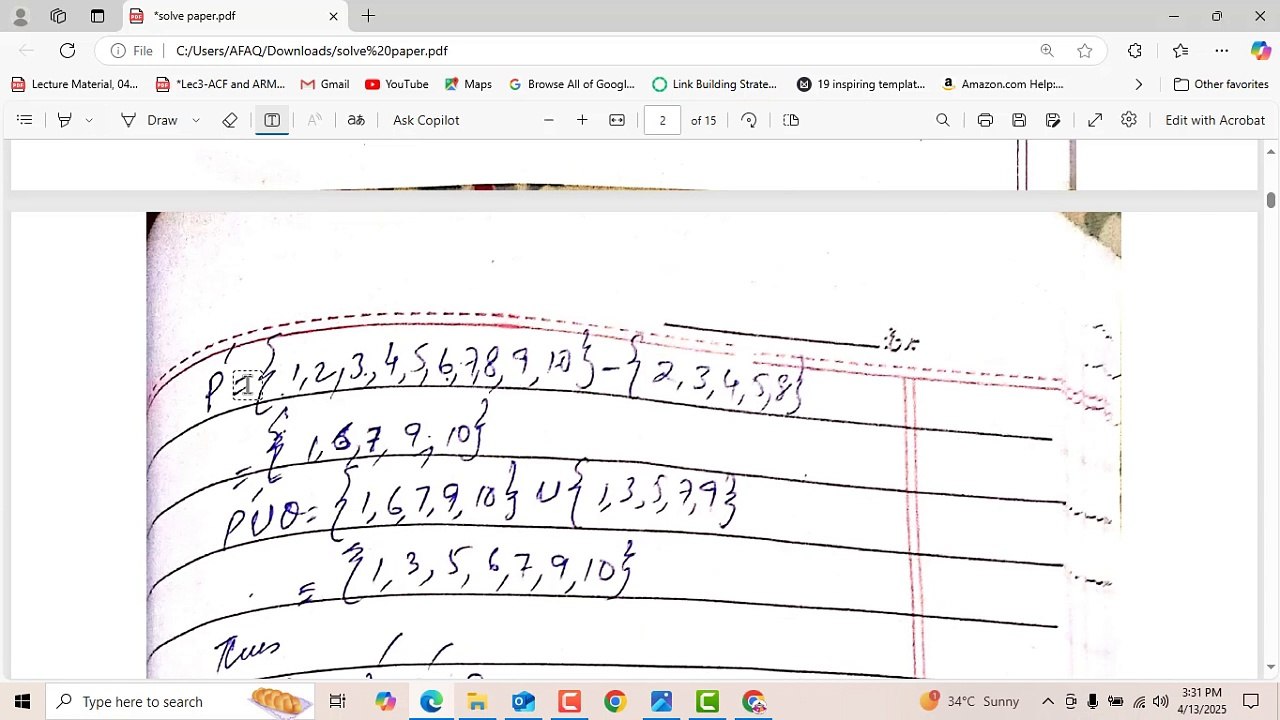 *solve paper.pdf
File C:/Users/AFAQ/Downloads/solve%20paper.pdf
Lecture Material, 04... *Lec3-ACF and ARM... Gmail YouTube Maps Browse All of Googl... Link Building Strate... 19 inspiring templat... Amazon.com Help:... Other favorites
Draw aあ Ask Copilot 2 of 15 Edit with Acrobat
P' = {1,2,3,4,5,6,7,8,9,10} - {2,3,4,5,8}
= {1,6,7,9,10}
P'UO = {1,6,7,9,10} U {1,3,5,7,9}
= {1,3,5,6,7,9,10}
Thus
Type here to search 1 34°C Sunny 3:31 PM
4/13/2025